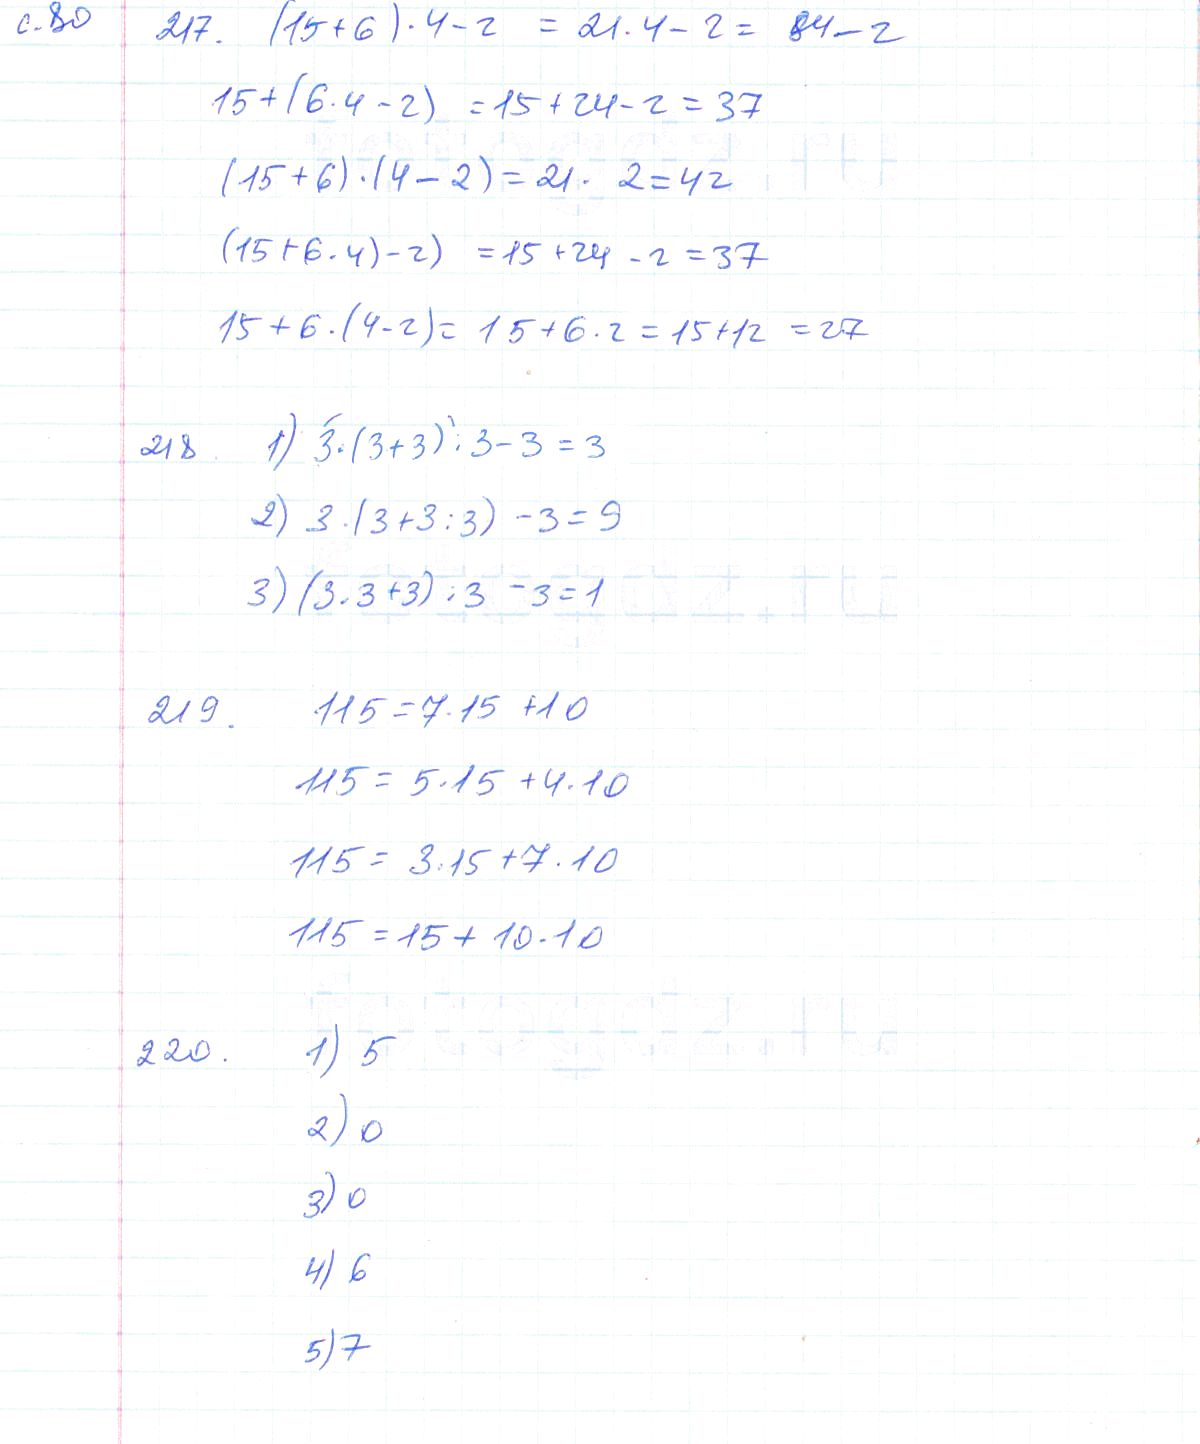 с.80 217. (15+6)·4-2 = 21·4-2= 84-2
15+(6·4-2) =15+24-2=37
(15+6)·(4-2)=21· 2=42
(15+6·4)-2) =15+24-2=37
15+6·(4-2)= 15+6·2=15+12 =27
218 1) 3·(3+3):3-3=3
2) 3·(3+3:3) -3=9
3) (3·3+3):3 -3=1
219. 115=7·15 +10
115= 5·15 +4·10
115= 3·15+7·10
115=15+ 10·10
220. 1) 5
2) 0
3) 0
4) 6
5) 7